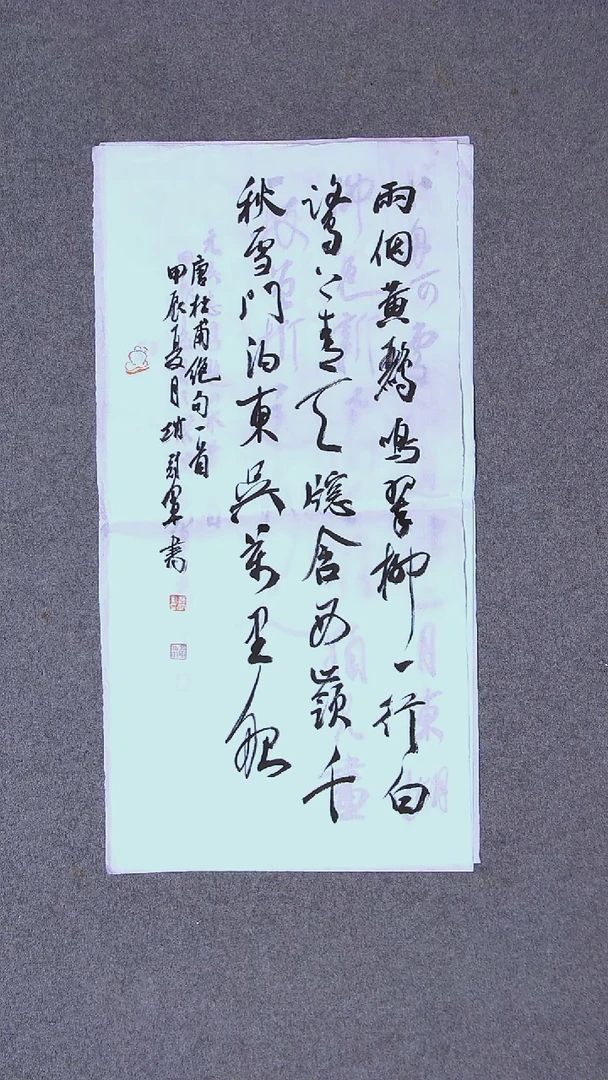 兩個黃鸝鳴翠柳一行白
鷺上青天牕含西嶺千
秋雪門泊東吳萬里船
唐杜甫絕句一首
甲辰夏月 軍書